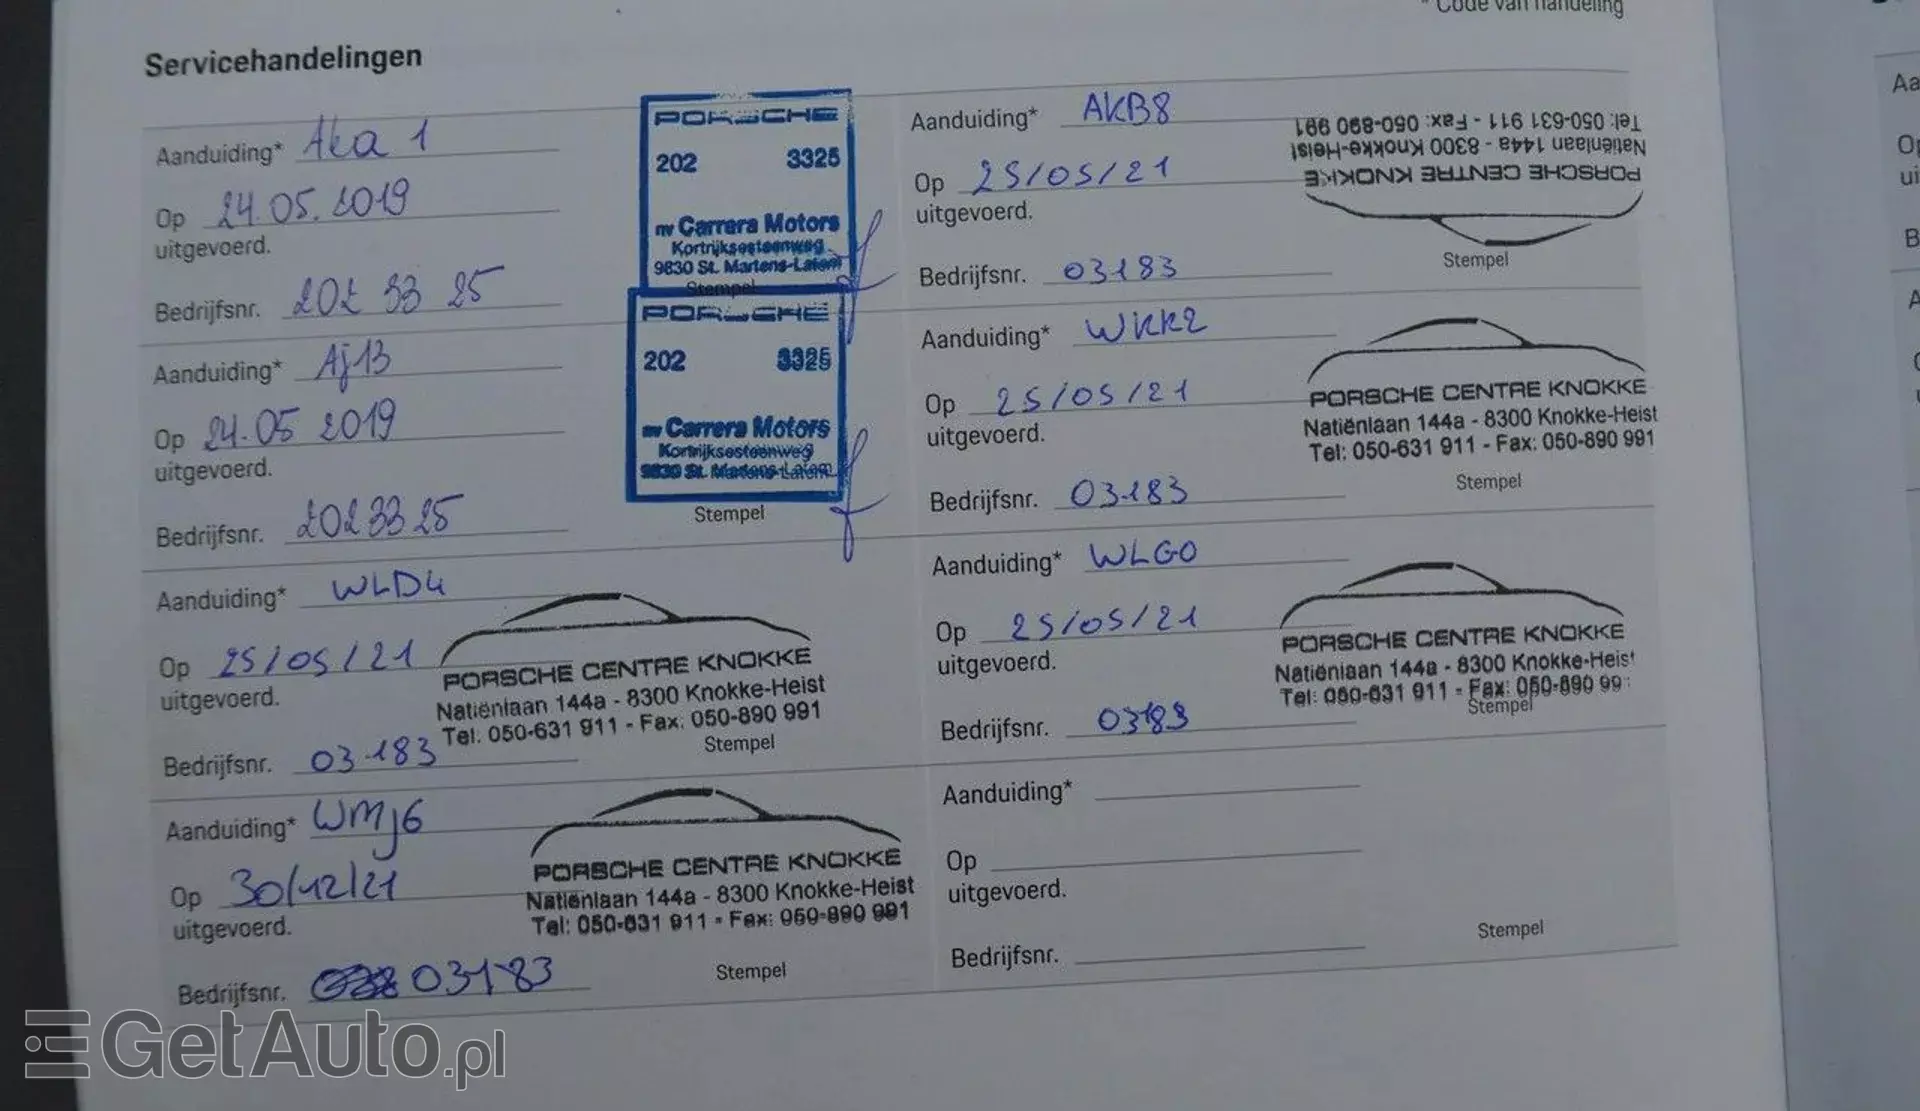 * Code van handeling
Servicehandelingen
Aanduiding* Aka 1
Op 24.05.2019
uitgevoerd.
Bedrijfsnr. 202 33 25
PORSCHE
202 3325
nv Carrera Motors
Kortrijksesteenweg
9830 St. Martens-Latem
Stempel
Aanduiding* Aj13
Op 24.05 2019
uitgevoerd.
Bedrijfsnr. 202 33 25
PORSCHE
202 3325
nv Carrera Motors
Kortrijksesteenweg
9830 St. Martens-Latem
Stempel
Aanduiding* WLD4
Op 25/05/21
uitgevoerd.
Bedrijfsnr. 03183
PORSCHE CENTRE KNOKKE
Natiënlaan 144a - 8300 Knokke-Heist
Tel: 050-631 911 - Fax: 050-890 991
Stempel
Aanduiding* WMj6
Op 30/12/21
uitgevoerd.
Bedrijfsnr. 03183
PORSCHE CENTRE KNOKKE
Natiënlaan 144a - 8300 Knokke-Heist
Tel: 050-631 911 - Fax: 050-890 991
Stempel
Aanduiding* AKB8
Op 25/05/21
uitgevoerd.
Bedrijfsnr. 03183
PORSCHE CENTRE KNOKKE
Natiënlaan 144a - 8300 Knokke-Heist
Tel: 050-631 911 - Fax: 050-890 991
Stempel
Aanduiding* WKK2
Op 25/05/21
uitgevoerd.
Bedrijfsnr. 03183
PORSCHE CENTRE KNOKKE
Natiënlaan 144a - 8300 Knokke-Heist
Tel: 050-631 911 - Fax: 050-890 991
Stempel
Aanduiding* WLG0
Op 25/05/21
uitgevoerd.
Bedrijfsnr. 03183
PORSCHE CENTRE KNOKKE
Natiënlaan 144a - 8300 Knokke-Heist
Tel: 050-631 911 - Fax: 050-890 99
Stempel
Aanduiding*
Op
uitgevoerd.
Bedrijfsnr.
Stempel
GetAuto.pl